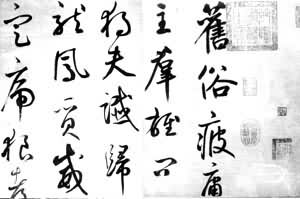 舊俗疲庸
主羣雄問
獨夫讖歸
龍鳳質威
定虎狼都